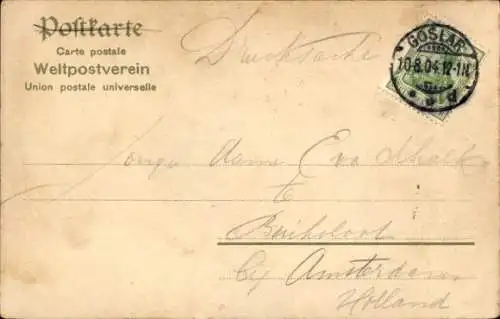 Postkarte
Carte postale
Weltpostverein
Union postale universelle
Drucksache
GOSLAR
10.8.04.12-1N.
* d
Eva
te
by Amsterdam
Holland